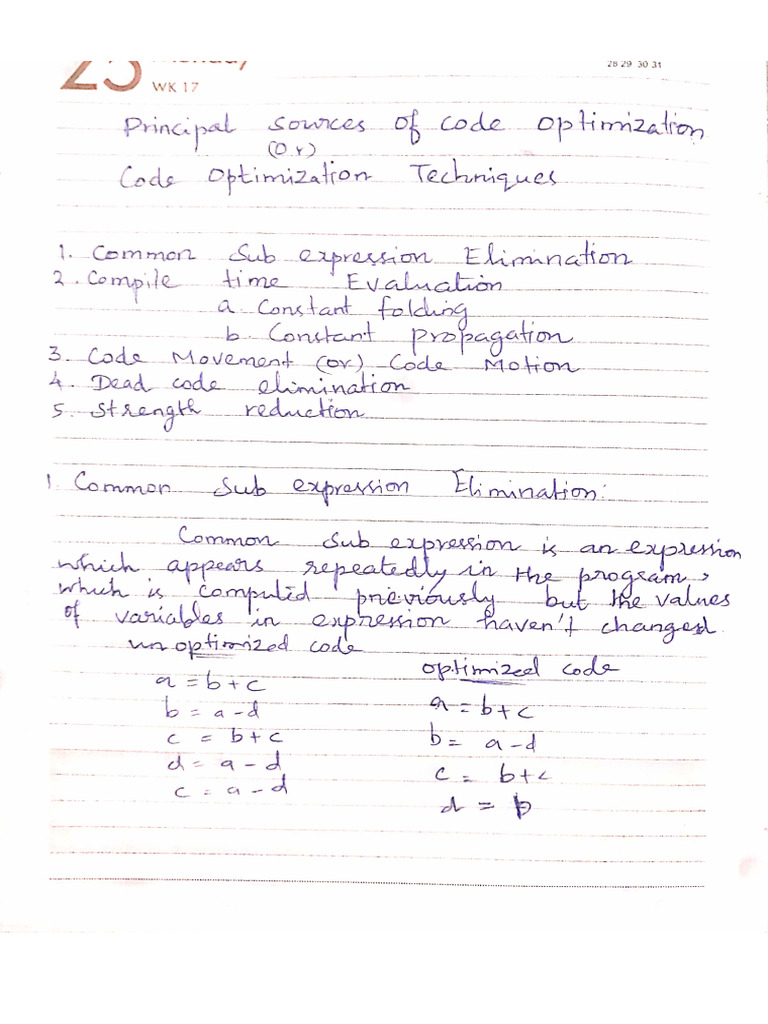 25 Monday
WK 17
28 29 30 31
Principal sources of code optimization
(Or)
Code Optimization Techniques
1. Common Sub expression Elimination
2. Compile time Evaluation
a Constant folding
b. Constant propagation
3. Code Movement (or) Code Motion
4. Dead code elimination
5. Strength reduction
1. Common Sub expression Elimination:
Common Sub expression is an expression
which appears repeatedly in the program,
which is computed previously but the values
of variables in expression haven't changed.
unoptimized code
a = b + c
b = a - d
c = b + c
d = a - d
c = a - d
optimized code
a = b + c
b = a - d
c = b + c
d = b